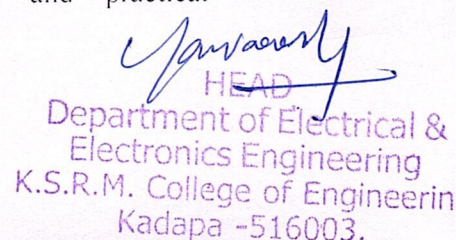 and practical
HEAD
Department of Electrical &
Electronics Engineering
K.S.R.M. College of Engineerin
Kadapa -516003.